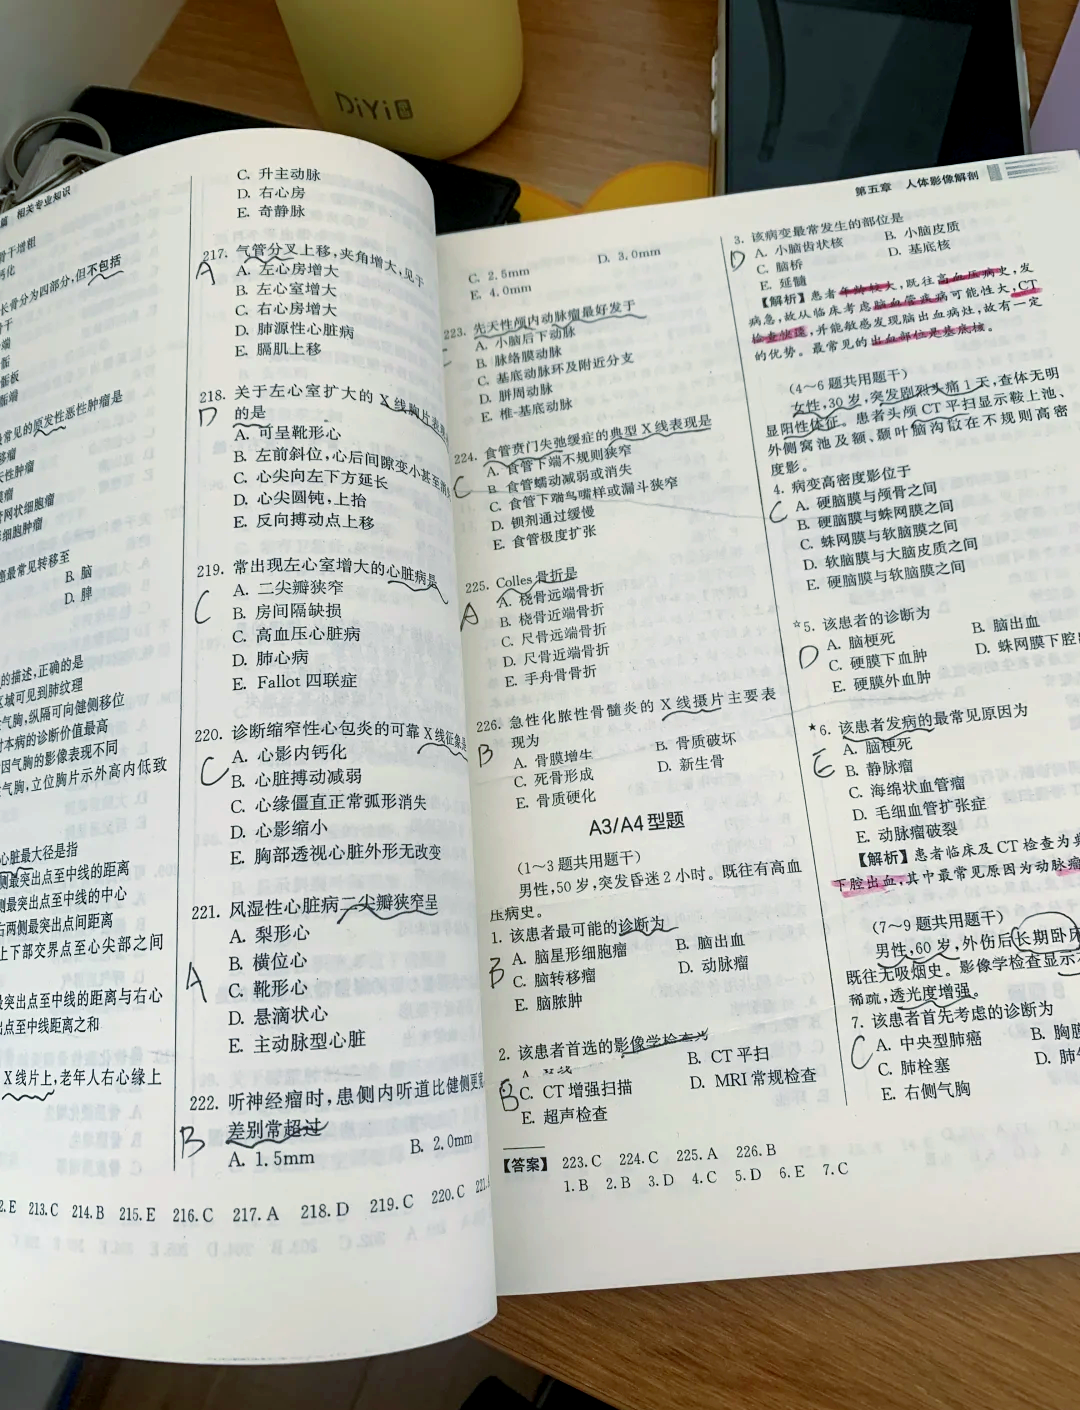 DiYi
篇 相关专业知识
骨干增粗
钙化
长骨分为四部分,但不包括
骨干
端
骺
骺板
骺端
最常见的原发性恶性肿瘤是
移瘤
性肿瘤
瘤
网状细胞瘤
细胞肿瘤
最常见转移至
B. 脑
D. 脾
的描述,正确的是
区域可见到肺纹理
气胸,纵隔可向健侧移位
对本病的诊断价值最高
因气胸的影像表现不同
气胸,立位胸片示外高内低致
心脏最大径是指
侧最突出点至中线的距离
侧最突出点至中线的中心
右两侧最突出点间距离
上下部交界点至心尖部之间
最突出点至中线的距离与右心
出点至中线距离之和
X线片上,老年人右心缘上
C. 升主动脉
D. 右心房
E. 奇静脉
217. 气管分叉上移,夹角增大,见于
A
A. 左心房增大
B. 左心室增大
C. 右心房增大
D. 肺源性心脏病
E. 膈肌上移
218. 关于左心室扩大的 X 线胸片表现
D
的是
A. 可呈靴形心
B. 左前斜位,心后间隙变小甚至消
C. 心尖向左下方延长
D. 心尖圆钝,上抬
E. 反向搏动点上移
219. 常出现左心室增大的心脏病是
C
A. 二尖瓣狭窄
B. 房间隔缺损
C. 高血压心脏病
D. 肺心病
E. Fallot 四联症
220. 诊断缩窄性心包炎的可靠 X线征象是
C
A. 心影内钙化
B. 心脏搏动减弱
C. 心缘僵直正常弧形消失
D. 心影缩小
E. 胸部透视心脏外形无改变
221. 风湿性心脏病二尖瓣狭窄呈
A
A. 梨形心
B. 横位心
C. 靴形心
D. 悬滴状心
E. 主动脉型心脏
222. 听神经瘤时,患侧内听道比健侧更宽
B
差别常超过
A. 1.5mm B. 2.0mm
2.E 213.C 214.B 215.E 216.C 217.A 218.D 219.C 220.C 221.
第五章 人体影像解剖
C. 2.5mm D. 3.0mm
E. 4.0mm
223. 先天性颅内动脉瘤最好发于
A. 小脑后下动脉
B. 脉络膜动脉
C. 基底动脉环及附近分支
D. 胼周动脉
E. 椎-基底动脉
224. 食管贲门失弛缓症的典型 X 线表现是
C
A. 食管下端不规则狭窄
B. 食管蠕动减弱或消失
C. 食管下端鸟嘴样或漏斗狭窄
D. 钡剂通过缓慢
E. 食管极度扩张
225. Colles 骨折是
A
A. 桡骨远端骨折
B. 桡骨近端骨折
C. 尺骨远端骨折
D. 尺骨近端骨折
E. 手舟骨骨折
226. 急性化脓性骨髓炎的 X 线摄片主要表
B
现为
A. 骨膜增生 B. 骨质破坏
C. 死骨形成 D. 新生骨
E. 骨质硬化
A3/A4 型题
(1～3 题共用题干)
男性,50 岁,突发昏迷 2 小时。既往有高血
压病史。
1. 该患者最可能的诊断为
B
A. 脑星形细胞瘤 B. 脑出血
C. 脑转移瘤 D. 动脉瘤
E. 脑脓肿
2. 该患者首选的影像学检查为
B
B. CT 平扫
C. CT 增强扫描 D. MRI 常规检查
E. 超声检查
【答案】 223.C 224.C 225.A 226.B
1.B 2.B 3.D 4.C 5.D 6.E 7.C
3. 该病变最常发生的部位是
D
A. 小脑齿状核 B. 小脑皮质
C. 脑桥 D. 基底核
E. 延髓
【解析】患者年龄较大,既往高血压病史,发
病急,故从临床考虑脑血管疾病可能性大,CT
检查快速,并能敏感发现脑出血病灶,故有一定
的优势。最常见的出血部位是基底核。
(4～6 题共用题干)
女性,30 岁,突发剧烈头痛 1 天,查体无明
显阳性体征。患者头颅 CT 平扫显示鞍上池、
外侧窝池及额、颞叶脑沟似在不规则高密
度影。
4. 病变高密度影位于
C
A. 硬脑膜与颅骨之间
B. 硬脑膜与蛛网膜之间
C. 蛛网膜与软脑膜之间
D. 软脑膜与大脑皮质之间
E. 硬脑膜与软脑膜之间
☆5. 该患者的诊断为
D
A. 脑梗死 B. 脑出血
C. 硬膜下血肿 D. 蛛网膜下腔出
E. 硬膜外血肿
★6. 该患者发病的最常见原因为
E
A. 脑梗死
B. 静脉瘤
C. 海绵状血管瘤
D. 毛细血管扩张症
E. 动脉瘤破裂
【解析】患者临床及 CT 检查为典
下腔出血,其中最常见原因为动脉瘤
(7～9 题共用题干)
男性,60 岁,外伤后长期卧床
既往无吸烟史。影像学检查显示
稀疏,透光度增强。
7. 该患者首先考虑的诊断为
C
A. 中央型肺癌 B. 胸膜
C. 肺栓塞 D. 肺
E. 右侧气胸